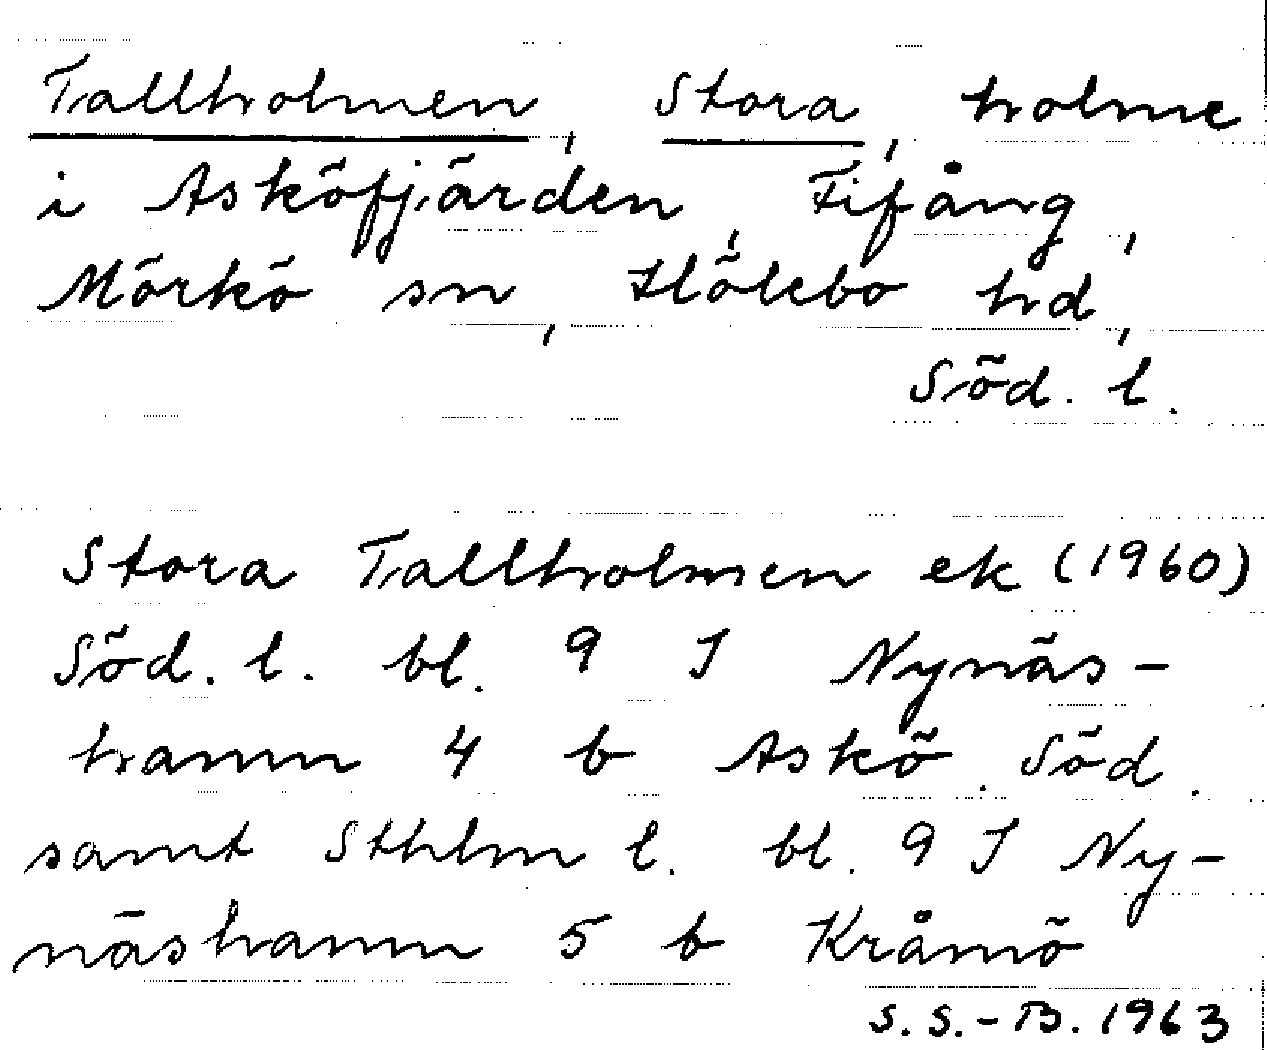 Tallholmen, Stora, holme
i Asköfjärden, Fifång,
Mörkö sn, Hölebo hd,
Söd. l.
Stora Tallholmen ek (1960)
Söd. l. bl. 9 I Nynäs-
hamn 4 b Askö. Söd.
samt Sthlm l. bl. 9 I Ny-
näshamn 5 b Kråmö
S. S.-B. 1963